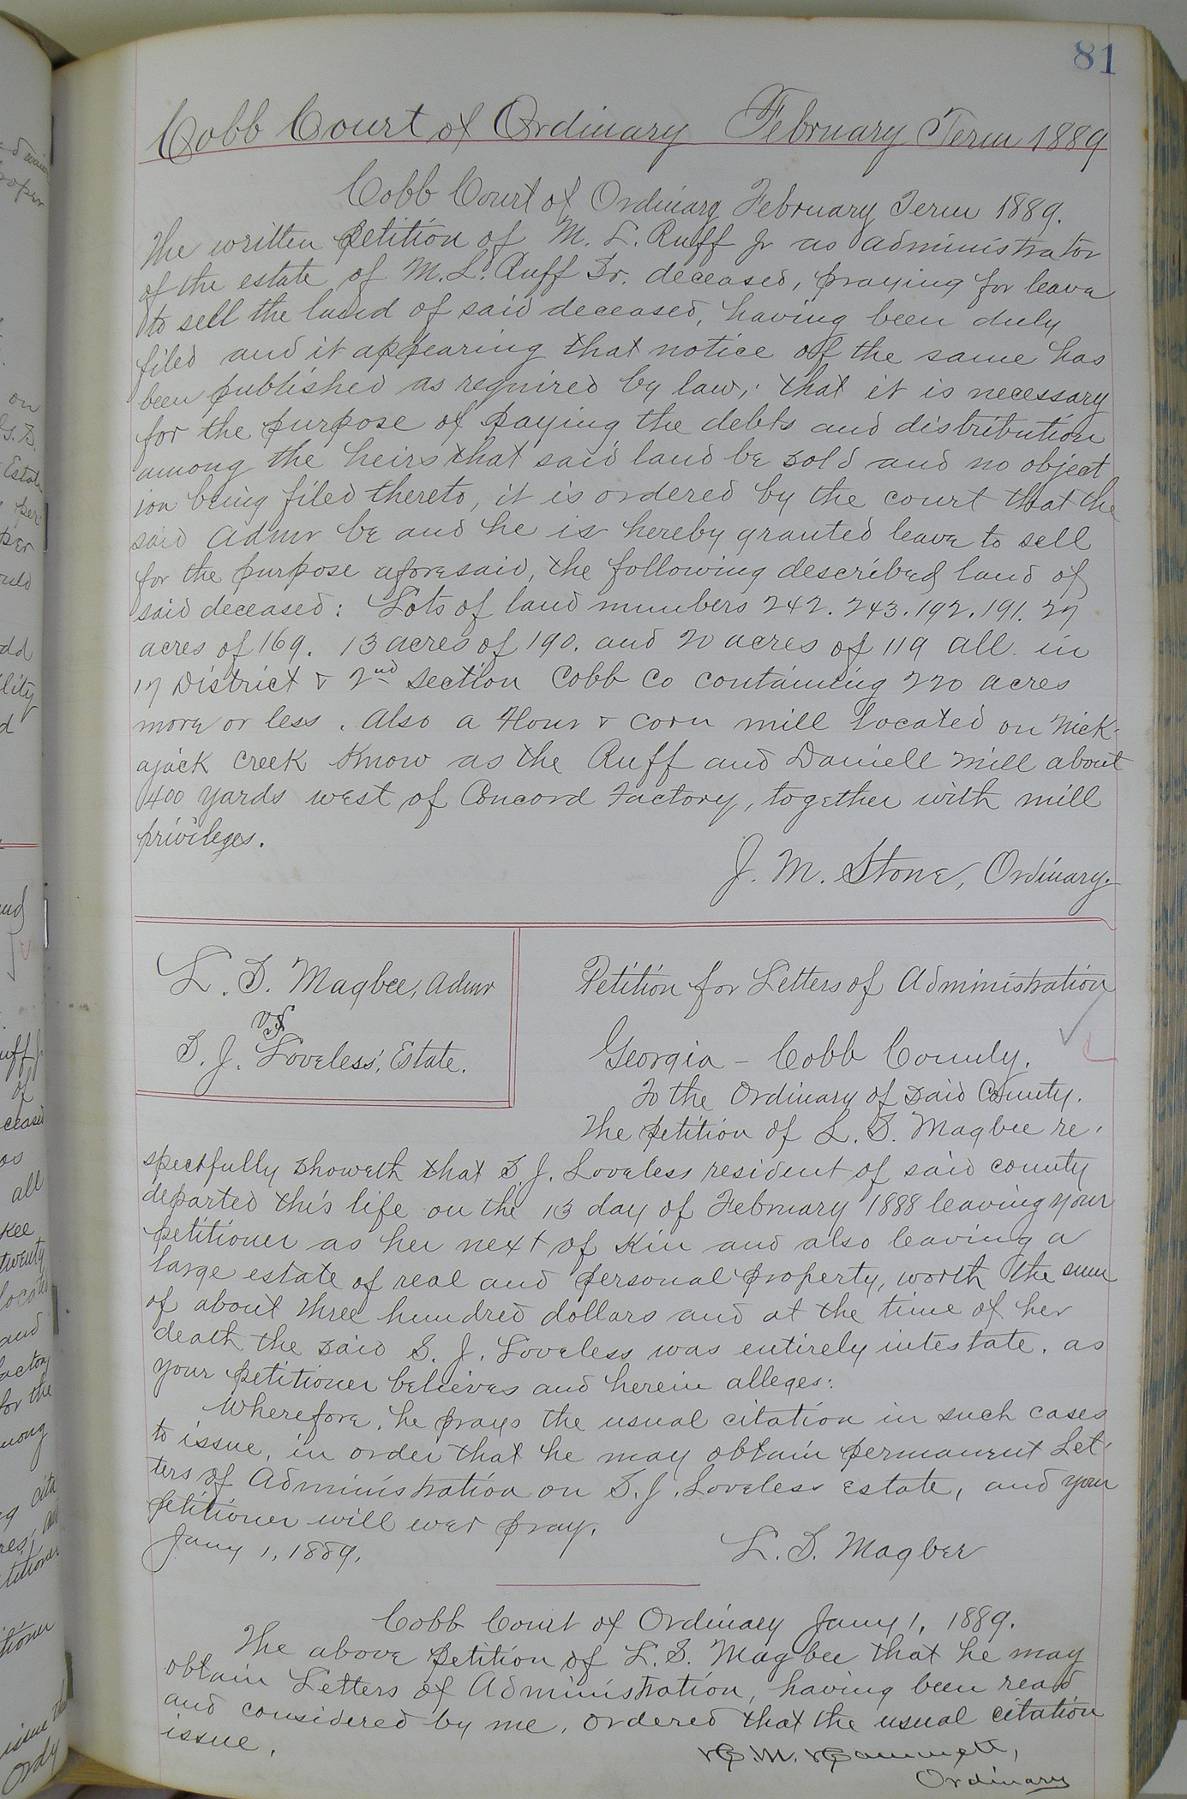 81
Cobb Court of Ordinary February Term 1889
Cobb Court of Ordinary February Term 1889.
The written petition of M. L. Ruff Jr as administrator
of the estate of M. L. Ruff Sr. deceased, praying for leave
to sell the land of said deceased, having been duly
filed and it appearing that notice of the same has
been published as required by law; that it is necessary
for the purpose of paying the debts and distribution
among the heirs that said land be sold and no object
ion being filed thereto, it is ordered by the court that the
said Admr be and he is hereby granted leave to sell
for the purpose aforesaid, the following described land of
said deceased: Lots of land numbers 242. 243. 192. 191. 27
acres of 169. 13 acres of 190. and 20 acres of 119 all in
17 District & 2nd section Cobb Co containing 220 acres
more or less. Also a Flour & corn mill located on Nick-
ajack Creek know as the Ruff and Daniell mill about
400 yards west of Concord Factory, together with mill
privileges.
J. M. Stone, Ordinary.
L. S. Magbee, Admr
vs
S. J. Loveless, Estate.
Petition for Letters of Administration
Georgia - Cobb County.
To the Ordinary of said County.
The petition of L. S. Magbee re-
spectfully showeth that S. J. Loveless resident of said county
departed this life on the 13 day of February 1888 leaving your
petitioner as her next of kin and also leaving a
large estate of real and personal property, worth the sum
of about three hundred dollars and at the time of her
death the said S. J. Loveless was entirely intestate. as
your petitioner believes and herein alleges:
Wherefore, he prays the usual citation in such cases
to issue, in order that he may obtain permanent Let-
ters of Administration on S. J. Loveless estate, and your
petitioner will ever pray.
Jany 1, 1889.
L. S. Magbee
Cobb Court of Ordinary Jany 1, 1889.
The above petition of L. S. Magbee that he may
obtain Letters of Administration, having been read
and considered by me, ordered that the usual citation
issue.
Ordinary